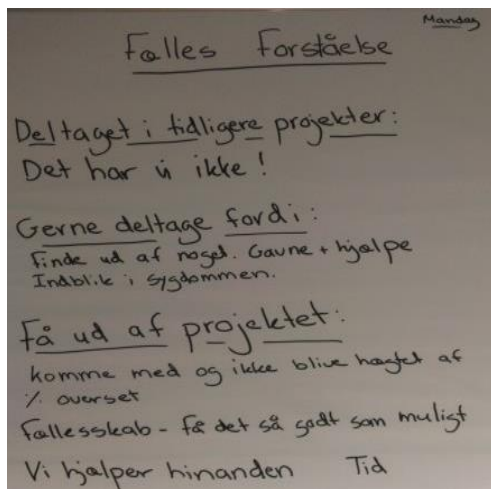 Mandag
Fælles Forståelse
Deltaget i tidligere projekter:
Det har vi ikke!
Gerne deltage fordi:
Finde ud af noget. Gavne + hjælpe
Indblik i sygdommen.
Få ud af projektet:
komme med og ikke blive hægtet af
% overset
Fællesskab - få det så godt som muligt
Vi hjælper hinanden Tid